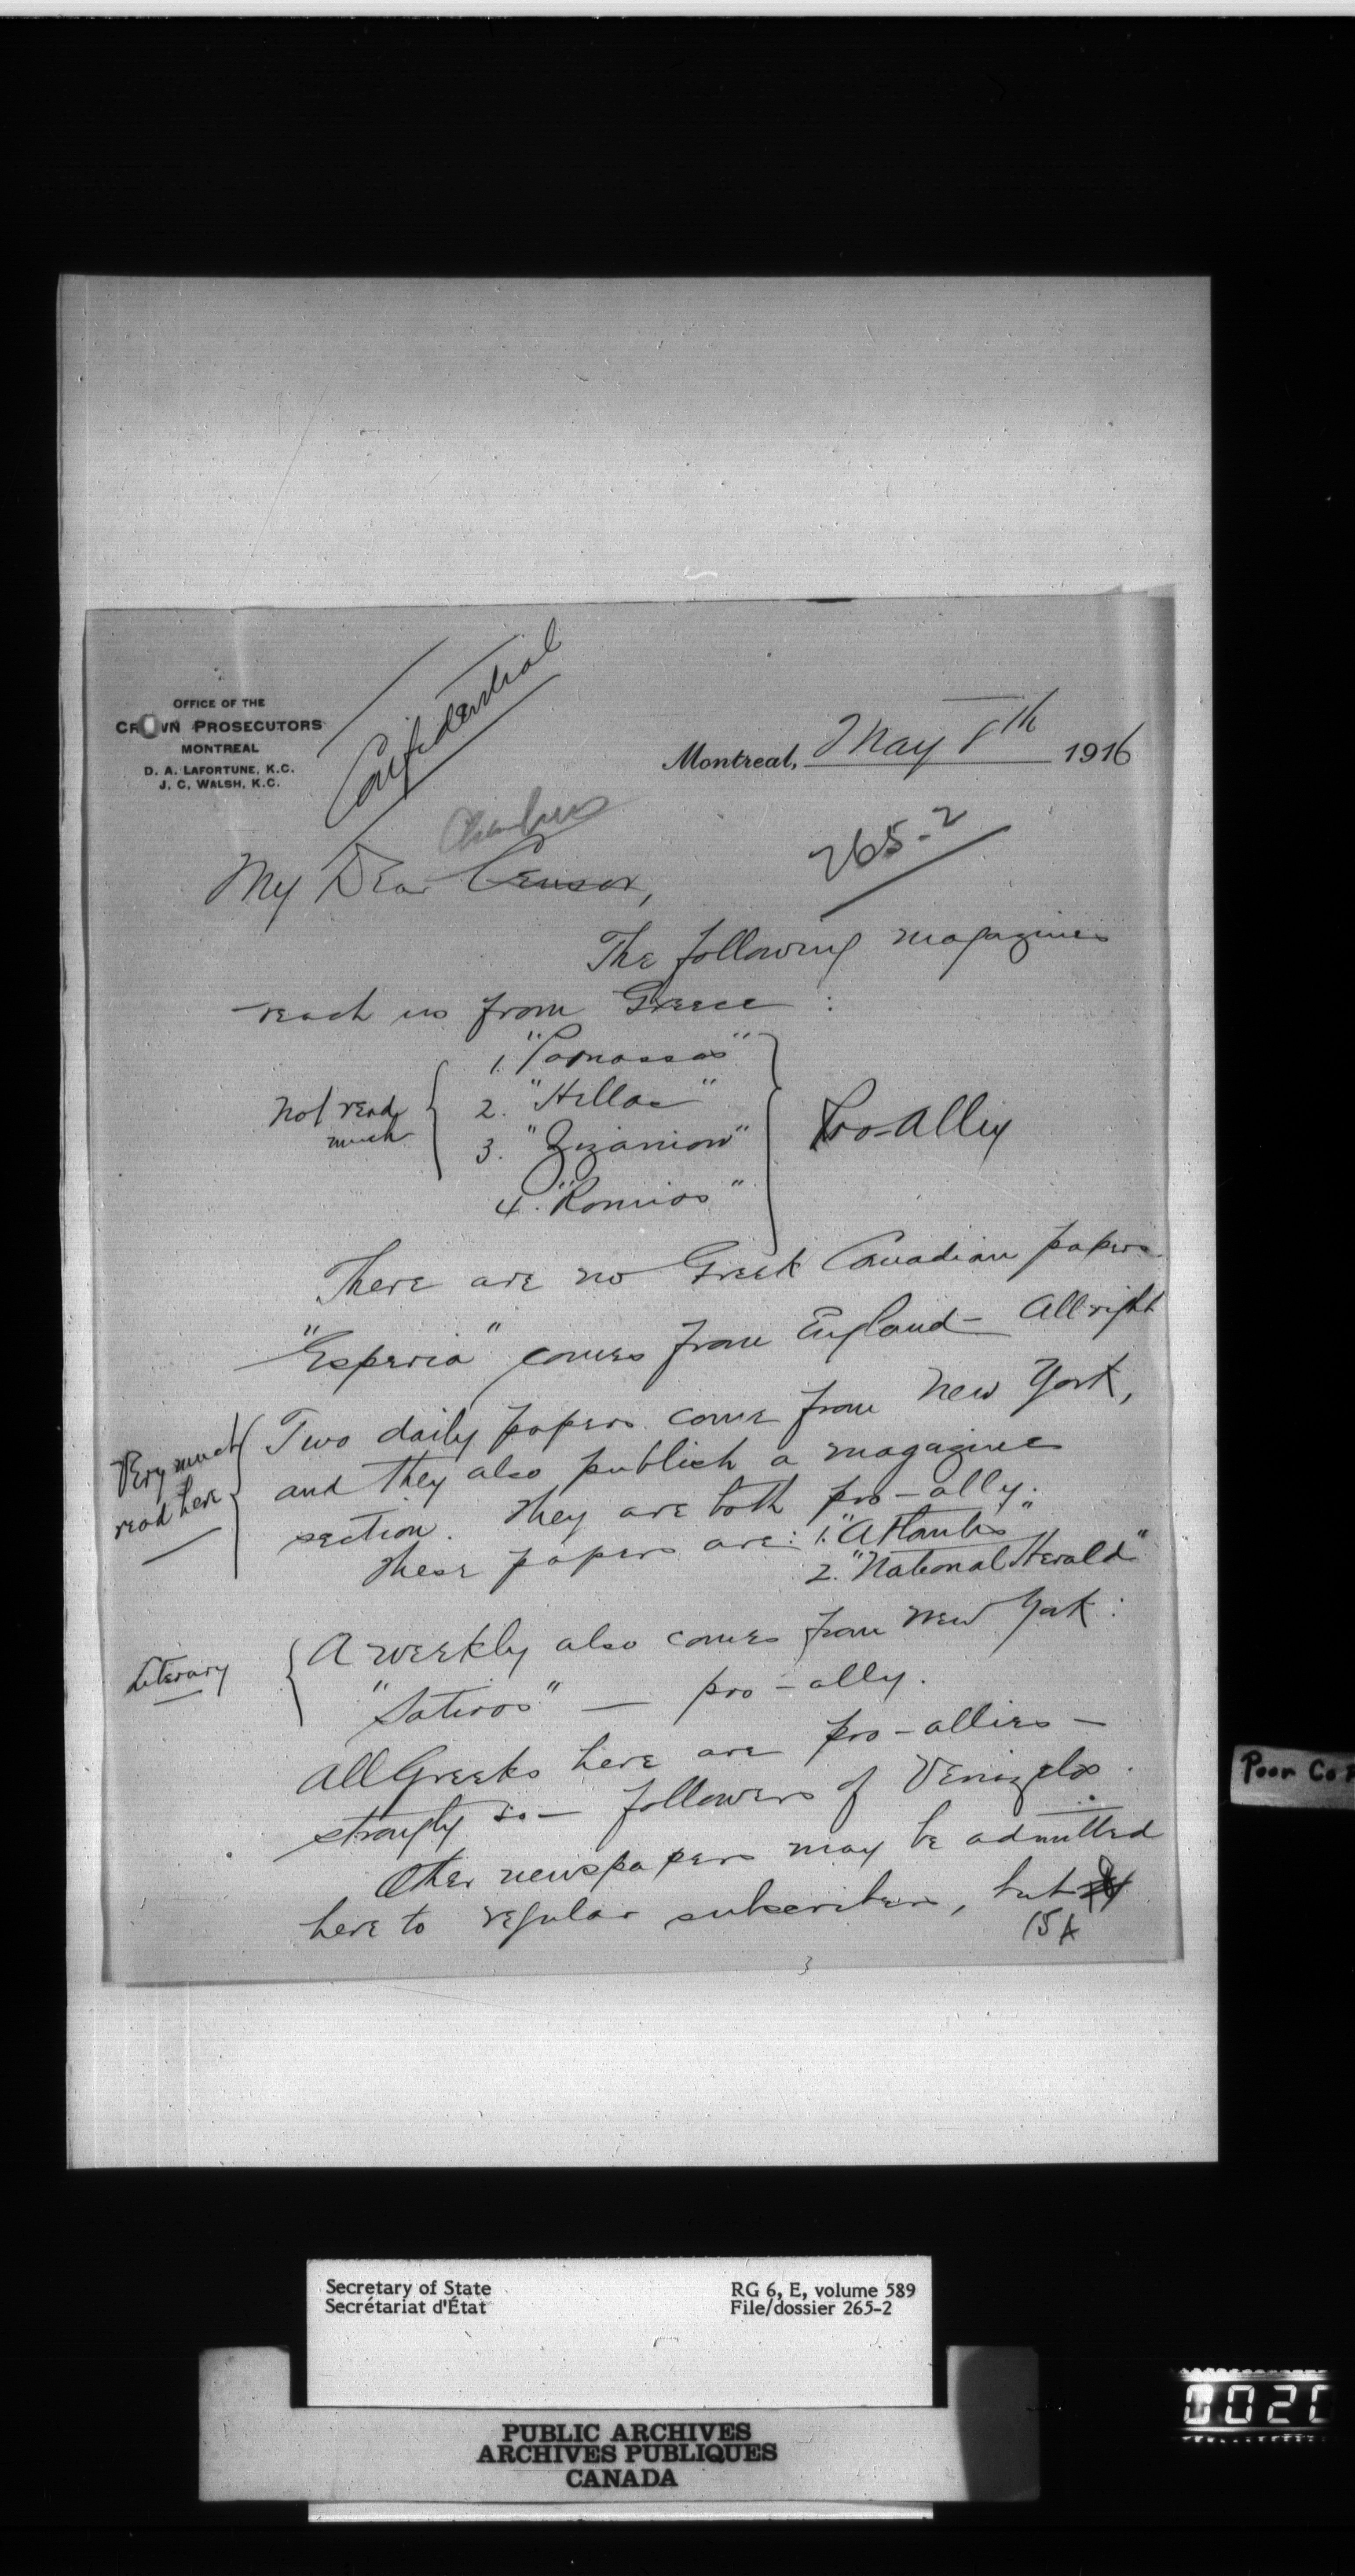 OFFICE OF THE
CROWN PROSECUTORS
MONTREAL
D. A. LAFORTUNE, K.C.
J. C. WALSH, K.C.
Confidential
Montreal, May 8th 1916
265-2
Chambers
My Dear Censor,
The following magazines
reach us from Greece :
Not read
much
1. "Parnassos"
2. "Hellas"
3. "Zizanion"
4. "Romios"
Pro-Ally
There are no Greek Canadian papers.
"Esperia" comes from England - All right
Very much
read here
Two daily papers come from New York,
and they also publish a magazine
section. They are both pro-ally.
These papers are: 1. "Atlantis"
2. "National Herald"
Literary
A weekly also comes from New York :
"Satiros" — pro-ally.
All Greeks here are pro-allies —
strongly so — followers of Venizelos.
Other newspapers may be admitted
here to regular subscribers, but
15A
3
Poor Co
Secretary of State
Secrétariat d'État
RG 6, E, volume 589
File/dossier 265-2
PUBLIC ARCHIVES
ARCHIVES PUBLIQUES
CANADA
0020